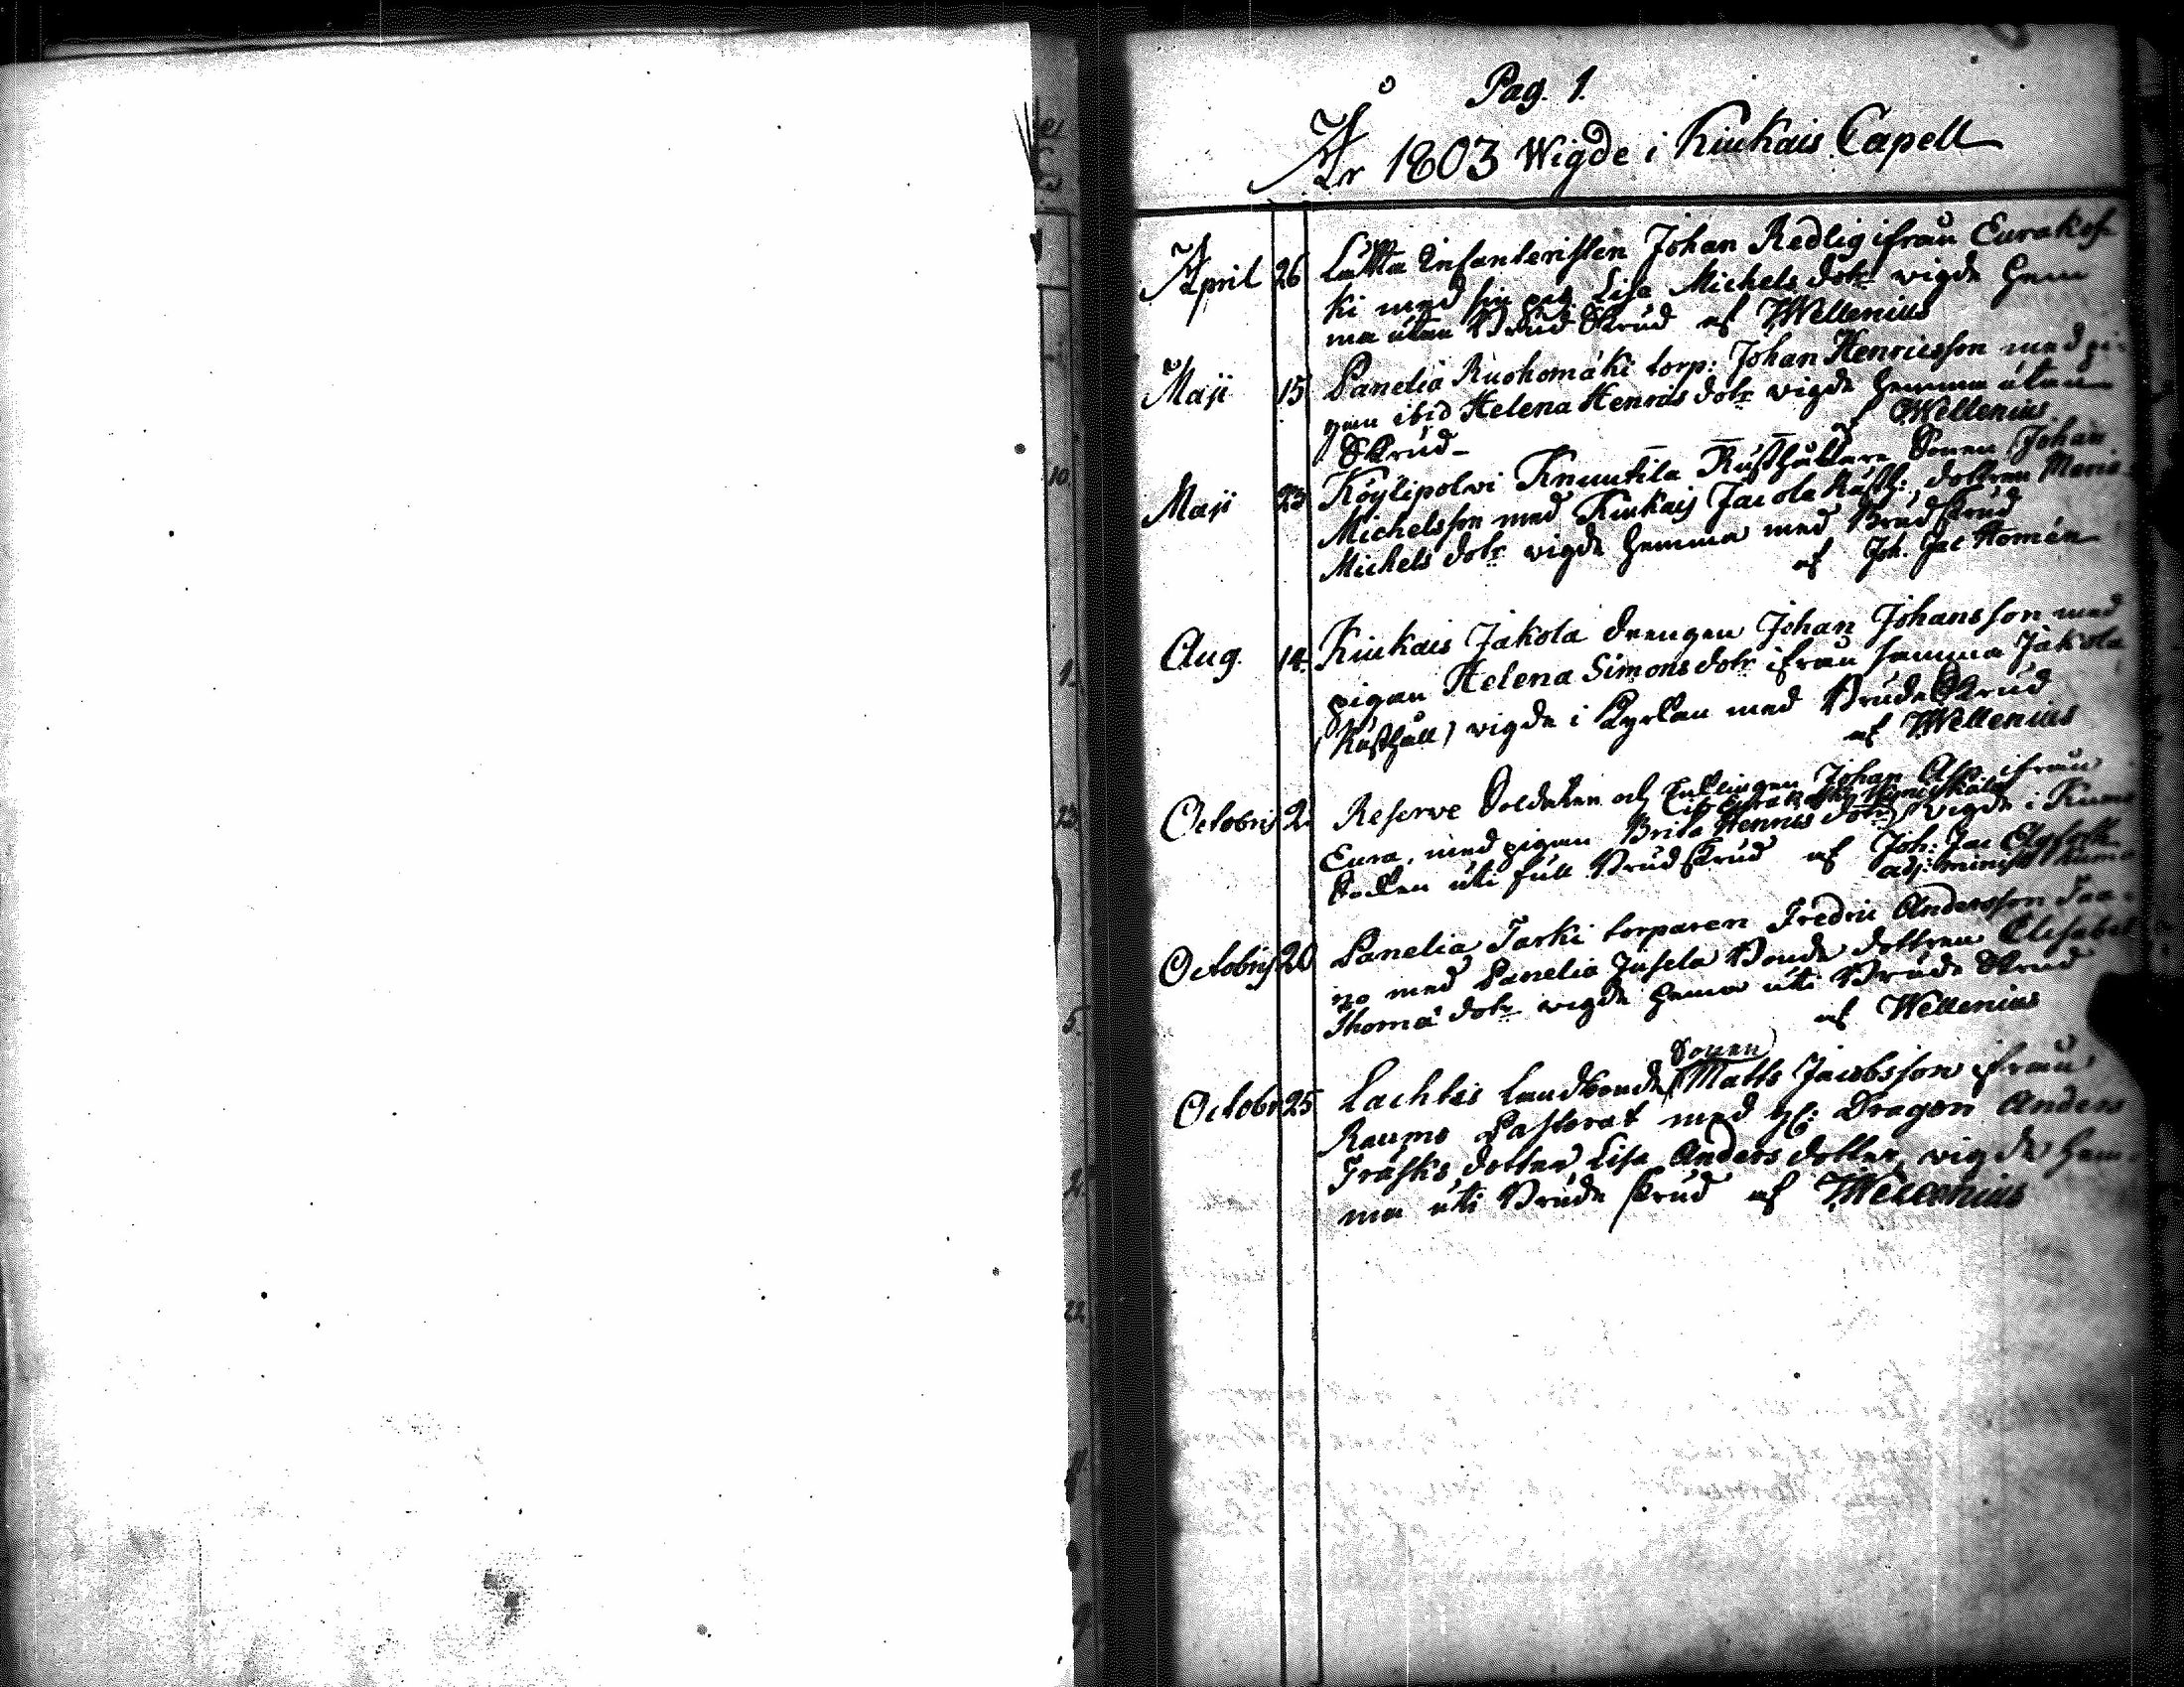 Pag. 1.
År 1803 Wigde i Kiukais Capell
April 26 Lätta Infanteristen Johan Redlig ifrån Eurakos-
ki med sin pig. Lisa Michels dotr wigde hem
ma utan Brud Skrud af JWellenius
Maji 15 Panelia Ruohomäki torp: Johan Henricsson med pi-
gan ibid Helena Henrics dotr wigde hemma utan
Skrud – af JWellenius
Maji 23 Köylipolvi Knuutila Rusthållare Sonen Johan
Michelsson med Kiukais Jacola Rusth: dottren Maria
Michels dotr wigde hemma med Brudskrud
af Joh. Jac Homén
Aug. 14. Kiukais Jakola drengen Johan Johansson med
pigan Helena Simons dotr ifrån samma Jakola
(Rusthåll) wigde i Kyrkan med Brude Skrud
af JWellenius
Octobris 2. Reserve Soldaten och Enklingen Johan Asp ifrån
Eura, med pigan Brita Henrics dotr wigde i
uti full Brudskrud af Joh: Jac
adj: minist
Octobris 20 Panelia Tarki torparen Fredric Andersson
med Panelia Jusela Bonde dottren Elisabet
Thomæ dotr wigde hema uti Brude Skrud
af Wellenius
Sonen
Octobr 25 Lachtis Landbonde Matts Jacobsson ifrån
Raumo Pastorat med Dragon Anders
Träsks dotter Lisa Anders dotter, wigde hem-
ma uti Brude skrud af JWellenius
10
1.
23
5.
2.
22